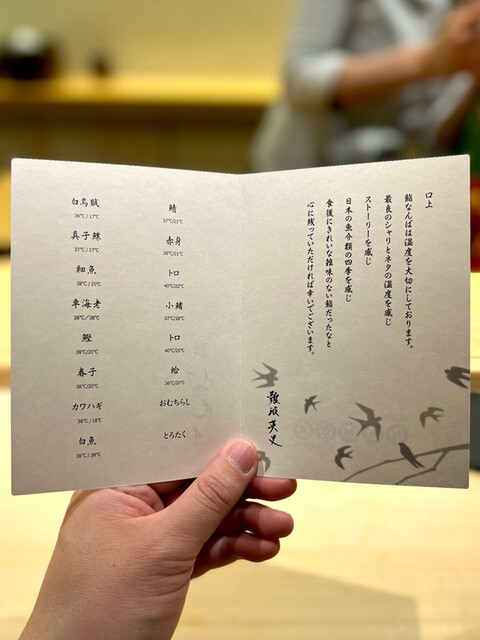 口上
鮨なんばは温度を大切にしております。
最良のシャリとネタの温度を感じ
ストーリーを感じ
日本の魚介類の四季を感じ
食後にきれいな雑味のない鮨だったなと
心に残っていただければ幸いでございます。
難波英史
白烏賊
36℃ / 17℃
真子鰈
37℃ / 17℃
細魚
38℃ / 20℃
車海老
38℃ / 38℃
鰹
38℃/20℃
春子
38℃/20℃
カワハギ
38℃ / 18℃
白魚
38℃ / 38℃
鯖
37℃/21℃
赤身
38℃/21℃
トロ
40℃/22℃
小鰭
37℃/18℃
トロ
40℃/25℃
蛤
36℃/20℃
おむちらし
とろたく